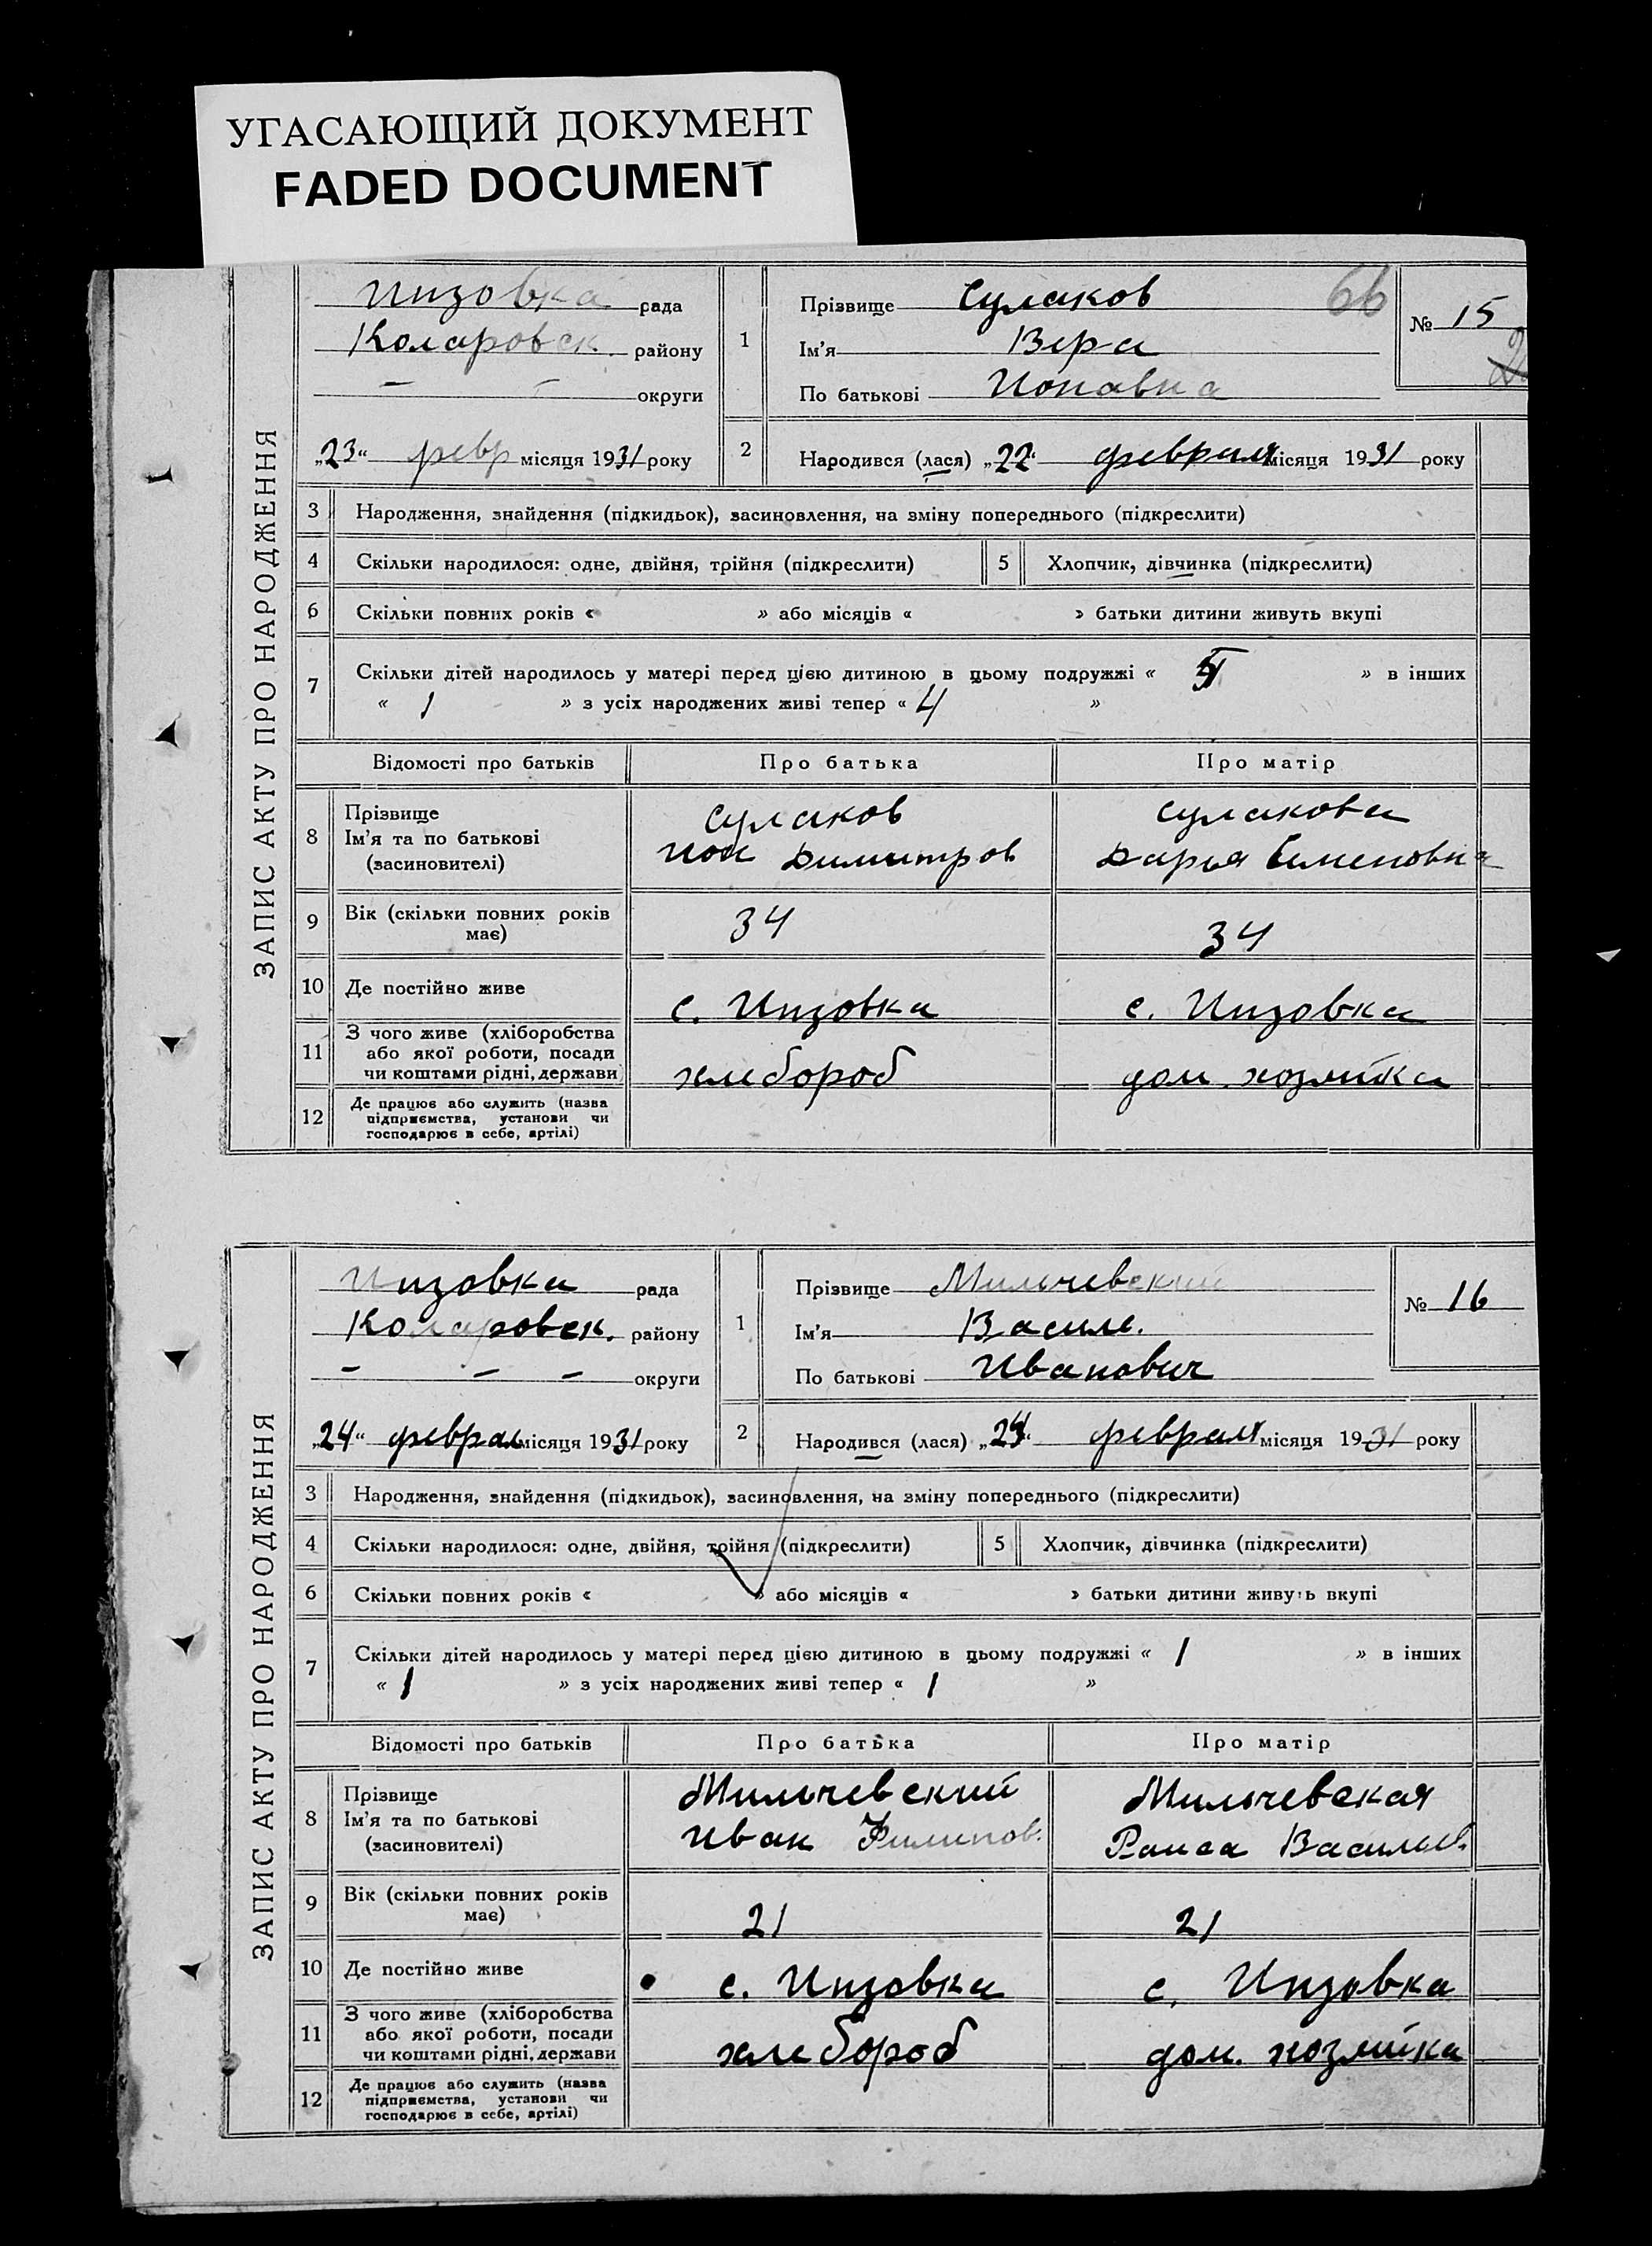 УГАСАЮЩИЙ ДОКУМЕНТ
FADED DOCUMENT
ЗАПИС АКТУ ПРО НАРОДЖЕННЯ
Инзовка рада
Коларовск. району
— — округи
„23“ февр місяця 1931 року
1
Прізвище Сулаков
Ім'я Вера
По батькові Ионавна
66
№ 15
2
Народився (лася) „22“ февраля місяця 1931 року
3 Народження, знайдення (підкидьок), засиновлення, на зміну попереднього (підкреслити)
4 Скільки народилося: одне, двійня, трійня (підкреслити) 5 Хлопчик, дівчинка (підкреслити)
6 Скільки повних років « » або місяців « » батьки дитини живуть вкупі
7 Скільки дітей народилось у матері перед цією дитиною в цьому подружжі « » в інших
« 1 » з усіх народжених живі тепер « 4 »
Відомості про батьків Про батька Про матір
8 Прізвище
Ім'я та по батькові
(засиновителі)
Сулаков
Ион Димитров
Сулакова
Дарья Семеновна
9 Вік (скільки повних років
має)
34 34
10 Де постійно живе с. Инзовка с. Инзовка
11 З чого живе (хліборобства
або якої роботи, посади
чи коштами рідні, держави
хлебороб дом. хозяйка
12 Де працює або служить (назва
підприємства, установи чи
господарює в себе, артілі)
ЗАПИС АКТУ ПРО НАРОДЖЕННЯ
Инзовка рада
Коларовск. району
— — — округи
„24“ феврал місяця 1931 року
1
Прізвище Мильчевский
Ім'я Василе.
По батькові Иванович
№ 16
2
Народився (лася) „24“ февраля місяця 1931 року
3 Народження, знайдення (підкидьок), засиновлення, на зміну попереднього (підкреслити)
4 Скільки народилося: одне, двійня, трійня (підкреслити) 5 Хлопчик, дівчинка (підкреслити)
6 Скільки повних років « » або місяців « » батьки дитини живуть вкупі
7 Скільки дітей народилось у матері перед цією дитиною в цьому подружжі « 1 » в інших
« 1 » з усіх народжених живі тепер « 1 »
Відомості про батьків Про батька Про матір
8 Прізвище
Ім'я та по батькові
(засиновителі)
Мильчевский
Иван Филипов.
Мильчевская
Раиса Васильев.
9 Вік (скільки повних років
має)
21 21
10 Де постійно живе с. Инзовка с. Инзовка
11 З чого живе (хліборобства
або якої роботи, посади
чи коштами рідні, держави
хлебороб дом. хозяйка
12 Де працює або служить (назва
підприємства, установи чи
господарює в себе, артілі)